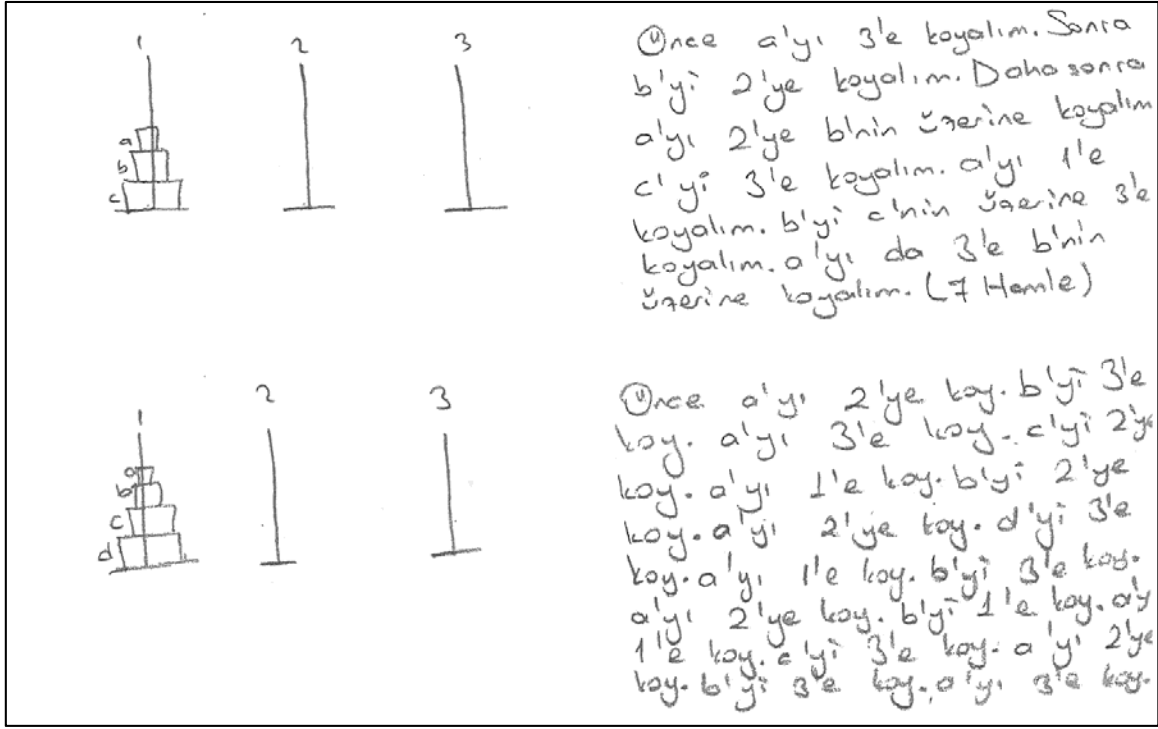 1 2 3
a
b
c
Önce a'yı 3'e koyalım. Sonra
b'yi 2'ye koyalım. Daha sonra
a'yı 2'ye b'nin üzerine koyalım
c'yi 3'e koyalım. a'yı 1'e
koyalım. b'yi c'nin üzerine 3'e
koyalım. a'yı da 3'e b'nin
üzerine koyalım. (7 Hamle)
1 2 3
a
b
c
d
Önce a'yı 2'ye koy. b'yi 3'e
koy. a'yı 3'e koy. c'yi 2'ye
koy. a'yı 1'e koy. b'yi 2'ye
koy. a'yı 2'ye koy. d'yi 3'e
koy. a'yı 1'e koy. b'yi 3'e koy.
a'yı 2'ye koy. b'yi 1'e koy. a'y
1'e koy. c'yi 3'e koy. a'yı 2'ye
koy. b'yi 3'e koy. a'yı 3'e koy.